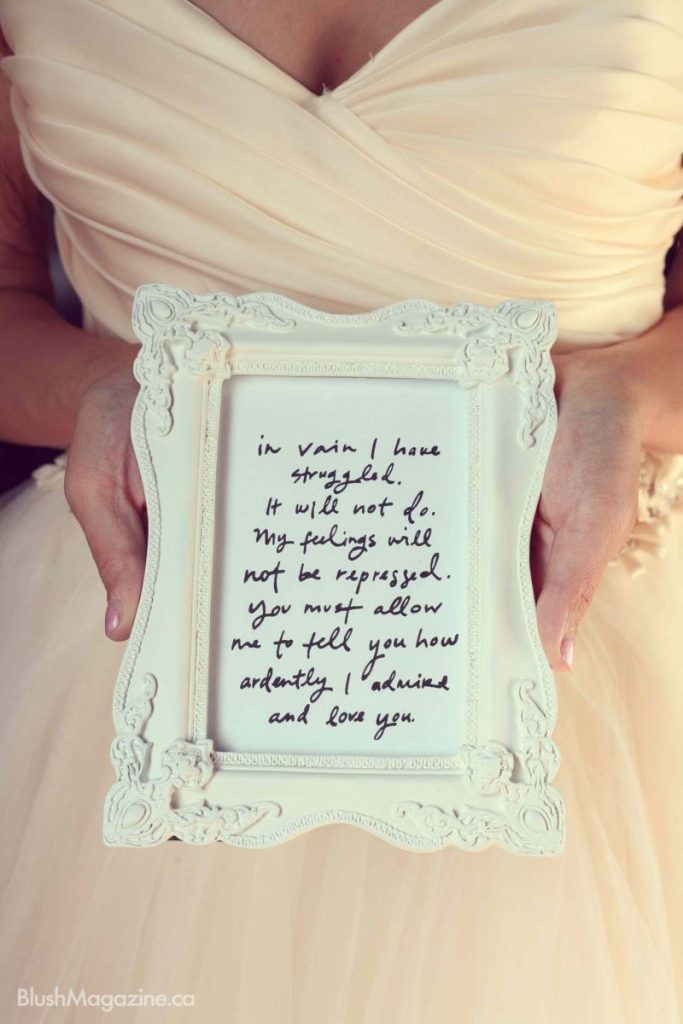 in vain I have
struggled.
It will not do.
My feelings will
not be repressed.
You must allow
me to tell you how
ardently I admire
and love you.
BlushMagazine.ca